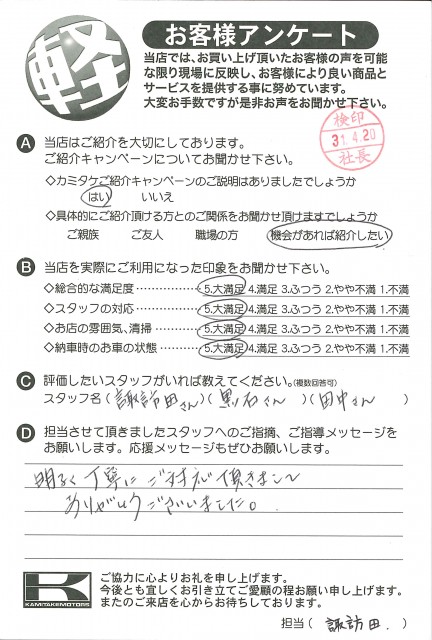 軽
お客様アンケート
当店では、お買い上げ頂いたお客様の声を可能
な限り現場に反映し、お客様により良い商品と
サービスを提供する事に努めています。
大変お手数ですが是非お声をお聞かせ下さい。
検印
31.4.20
社長
A 当店はご紹介を大切にしております。
ご紹介キャンペーンについてお聞かせ下さい。
◇カミタケご紹介キャンペーンのご説明はありましたでしょうか
はい いいえ
◇具体的にご紹介頂ける方とのご関係をお聞かせ頂けますでしょうか
ご親族 ご友人 職場の方 機会があれば紹介したい
B 当店を実際にご利用になった印象をお聞かせ下さい。
◇総合的な満足度 …………… 5.大満足 4.満足 3.ふつう 2.やや不満 1.不満
◇スタッフの対応 …………… 5.大満足 4.満足 3.ふつう 2.やや不満 1.不満
◇お店の雰囲気、清掃 ……… 5.大満足 4.満足 3.ふつう 2.やや不満 1.不満
◇納車時のお車の状態 ……… 5.大満足 4.満足 3.ふつう 2.やや不満 1.不満
C 評価したいスタッフがいれば教えてください。(複数回答可)
スタッフ名(諏訪田さん)(黒石さん)(田中さん)
D 担当させて頂きましたスタッフへのご指摘、ご指導メッセージを
お願いします。応援メッセージもぜひお願いします。
明るく丁寧にご対応頂きまして
ありがとうございました。
K
KAMITAKEMOTORS
ご協力に心よりお礼を申し上げます。
今後とも宜しくお引き立てご愛顧の程お願い申し上げます。
またのご来店を心からお待ちしております。
担当(諏訪田.)